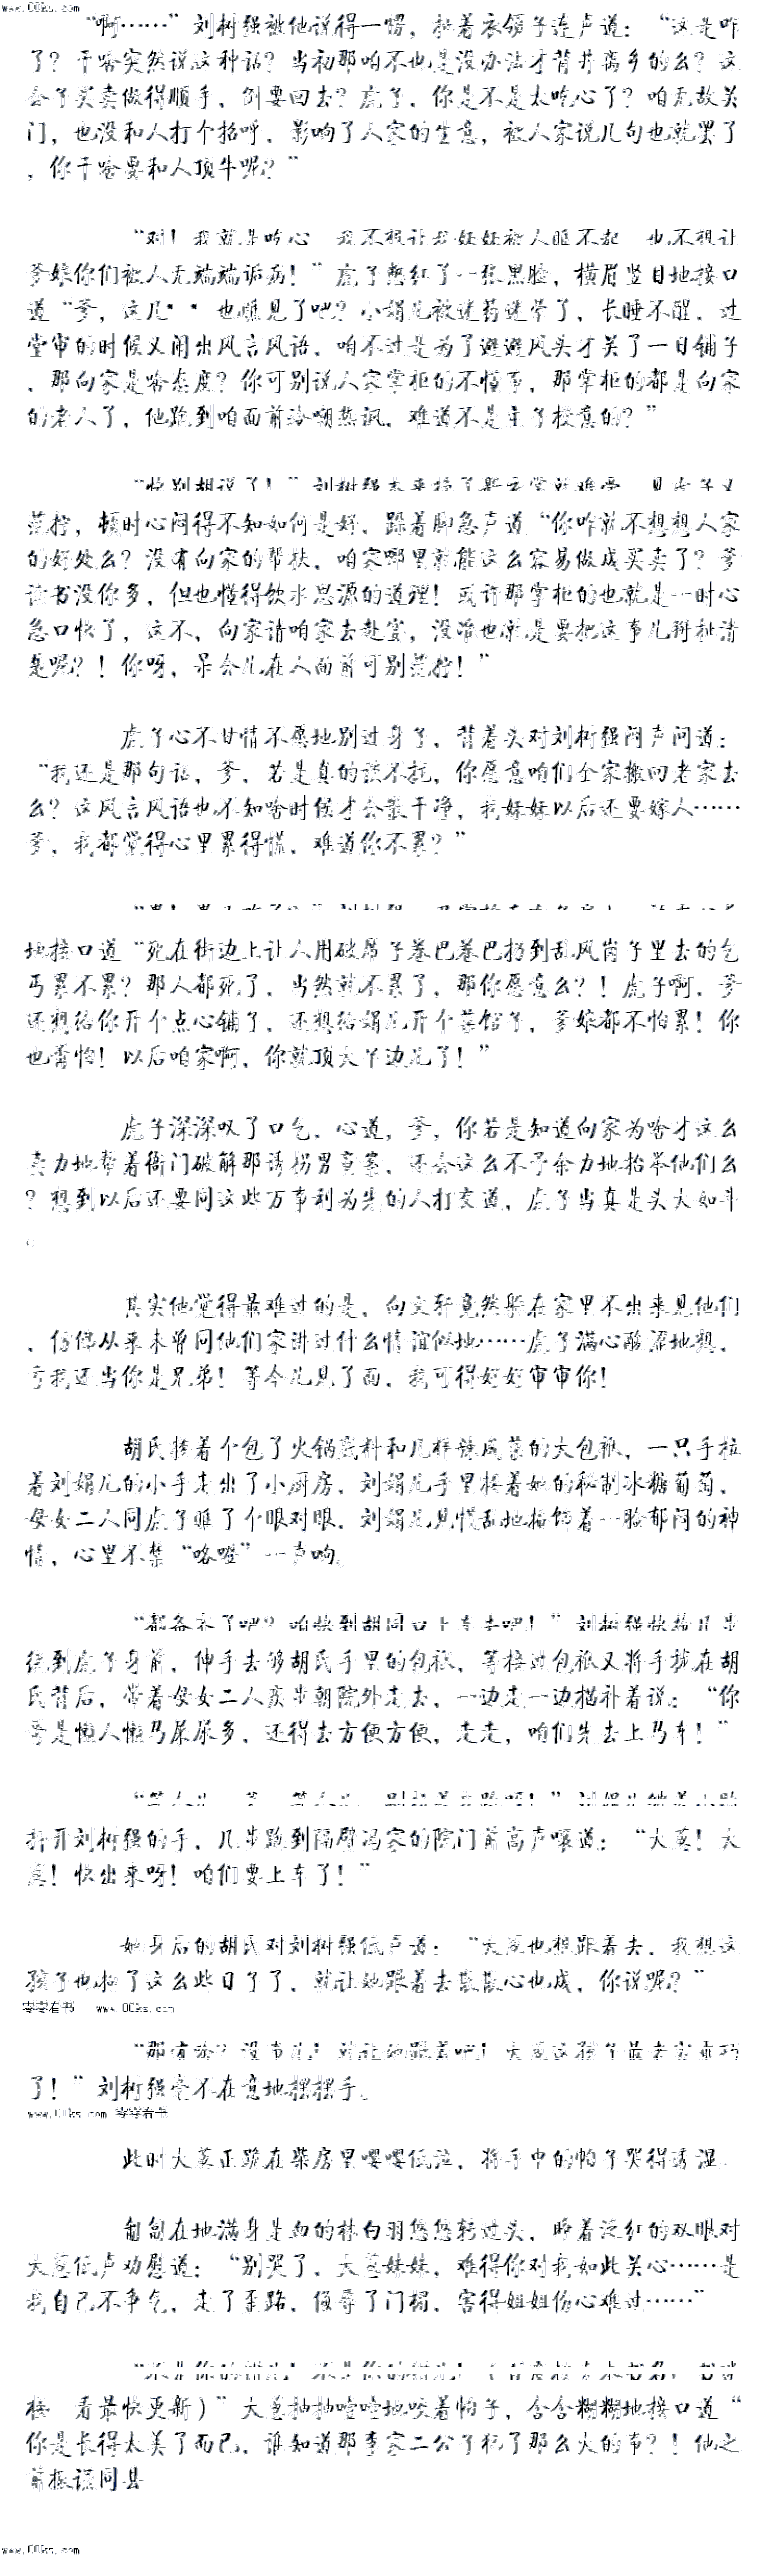 www.00ks.com
“啊……”刘树强被他说得一愣，和着衣领子连声道：“这是咋
了？干啥突然说这种话？当初那咱不也是没办法才背井离乡的么？这
会子买卖做得顺手，倒要回去？虎子，你是不是太吃心了？咱无故关
门，也没和人打个招呼，影响了人家的生意，被人家说几句也就罢了
，你干啥要和人顶牛呢？”
“对！我就是吃心 我不想让我妹妹被人瞧不起 也不想让
爹娘你们被人无端端诟病！”虎子憋红了一张黑脸，横眉竖目地接口
道“爹，这几 也瞧见了吧？小娟儿被迷药迷晕了，长睡不醒，过
堂审的时候又闹出风言风语，咱不过是为了避避风头才关了一日铺子
，那向家是啥态度？你可别说人家掌柜的不懂事，那掌柜的都是向家
的老人了，他跑到咱面前冷嘲热讽，难道不是主子授意的？”
“快别胡说了！”刘树强本来 了 就难 见虎子又
，顿时心闷得不知如何是好，跺着脚急声道“你咋就不想想人家
的好处么？没有向家的帮扶，咱家哪里就能这么容易做成买卖了？爹
读书没你多，但也懂得饮水思源的道理！或许那掌柜的也就是一时心
急口快了，这不，向家请咱家去赴宴，没准也就是要把这事儿掰扯清
楚呢？！你呀，呆会儿在人面前可别 ！”
虎子心不甘情不愿地别过身子，背着头对刘树强闷声问道：
“我还是那句话，爹，若是真的谈不拢，你愿意咱们全家搬回老家去
么？这风言风语也不知啥时候才会散干净，我妹妹以后还要嫁人……
爹，我都觉得心里累得慌，难道你不累？”
地接口道“死在街边上让人用破席子卷巴卷巴扔到乱风岗子里去的乞
丐累不累？那人都死了，当然就不累了，那你愿意么？！虎子啊，爹
还想给你开个点心铺子，还想给娟儿开个菜馆子，爹娘都不怕累！你
也甭怕！以后咱家啊，你就顶大半边儿了！”
虎子深深叹了口气，心道，爹，你若是知道向家为啥才这么
卖力地帮着衙门破解那诱拐男童案，还会这么不予余力地抬举他们么
？想到以后还要同这些万事利为先的人打交道，虎子当真是头大如斗
。
其实他觉得最难过的是，向文轩竟然躲在家里不出来见他们
，仿佛从来未曾同他们家讲过什么情谊似地……虎子满心酸涩地想，
亏我还当你是兄弟！等今儿见了面，我可得好好审审你！
胡氏挎着个包了火锅底料和几样辣咸菜的大包袱，一只手拉
着刘娟儿的小手走出了小厨房，刘娟儿手里搂着她的秘制冰糖葫芦，
母女二人同虎子碰了个眼对眼，刘娟儿见慌乱地掩饰着一脸郁闷的神
情，心里不禁“咯噔”一声响。
“都备齐了吧？咱快到胡同口上车去吧！”刘树强快 几步
绕到虎子身前，伸手去够胡氏手里的包袱，等接过包袱又将手抚在胡
氏背后，带着母女二人疾步朝院外走去，一边走一边描补着说：“你
哥是懒人懒马屎尿多，还得去方便方便，走走，咱们先去上马车！”
“等会儿 爹 等会儿 呀！”刘娟儿
挣开刘树强的手，几步跑到隔壁冯家的院门前高声嚷道：“大葱！大
葱！快出来呀！咱们要上车了！”
她身后的胡氏对刘树强低声道：“大葱也想跟着去，我想这
孩子也拘了这么些日子了，就让她跟着去散散心也成，你说呢？”
零零看书 www.00ks.com
“那有啥？没事儿！就让她跟着吧！大葱这孩子最老实乖巧
了！”刘树强毫不在意地摆摆手。
www.00ks.com 零零看书
此时大葱正跪在柴房里嘤嘤低泣，将手中的帕子哭得透湿。
匍匐在地满身是血的林白羽悠悠转过头，睁着泛红的双眼对
大葱低声劝慰道：“别哭了，大葱妹妹，难得你对我如此关心……是
我自己不争气，走了歪路，侮辱了门楣，害得姐姐伤心难过……”
“不是你的错儿！不是你的错儿！
看最快更新）”大葱抽抽噎噎地咬着帕子，含含糊糊地接口道“
你是长得太美了而已，谁知道那李家二公子犯了那么大的事？！他之
前振谎同县
www.00ks.com